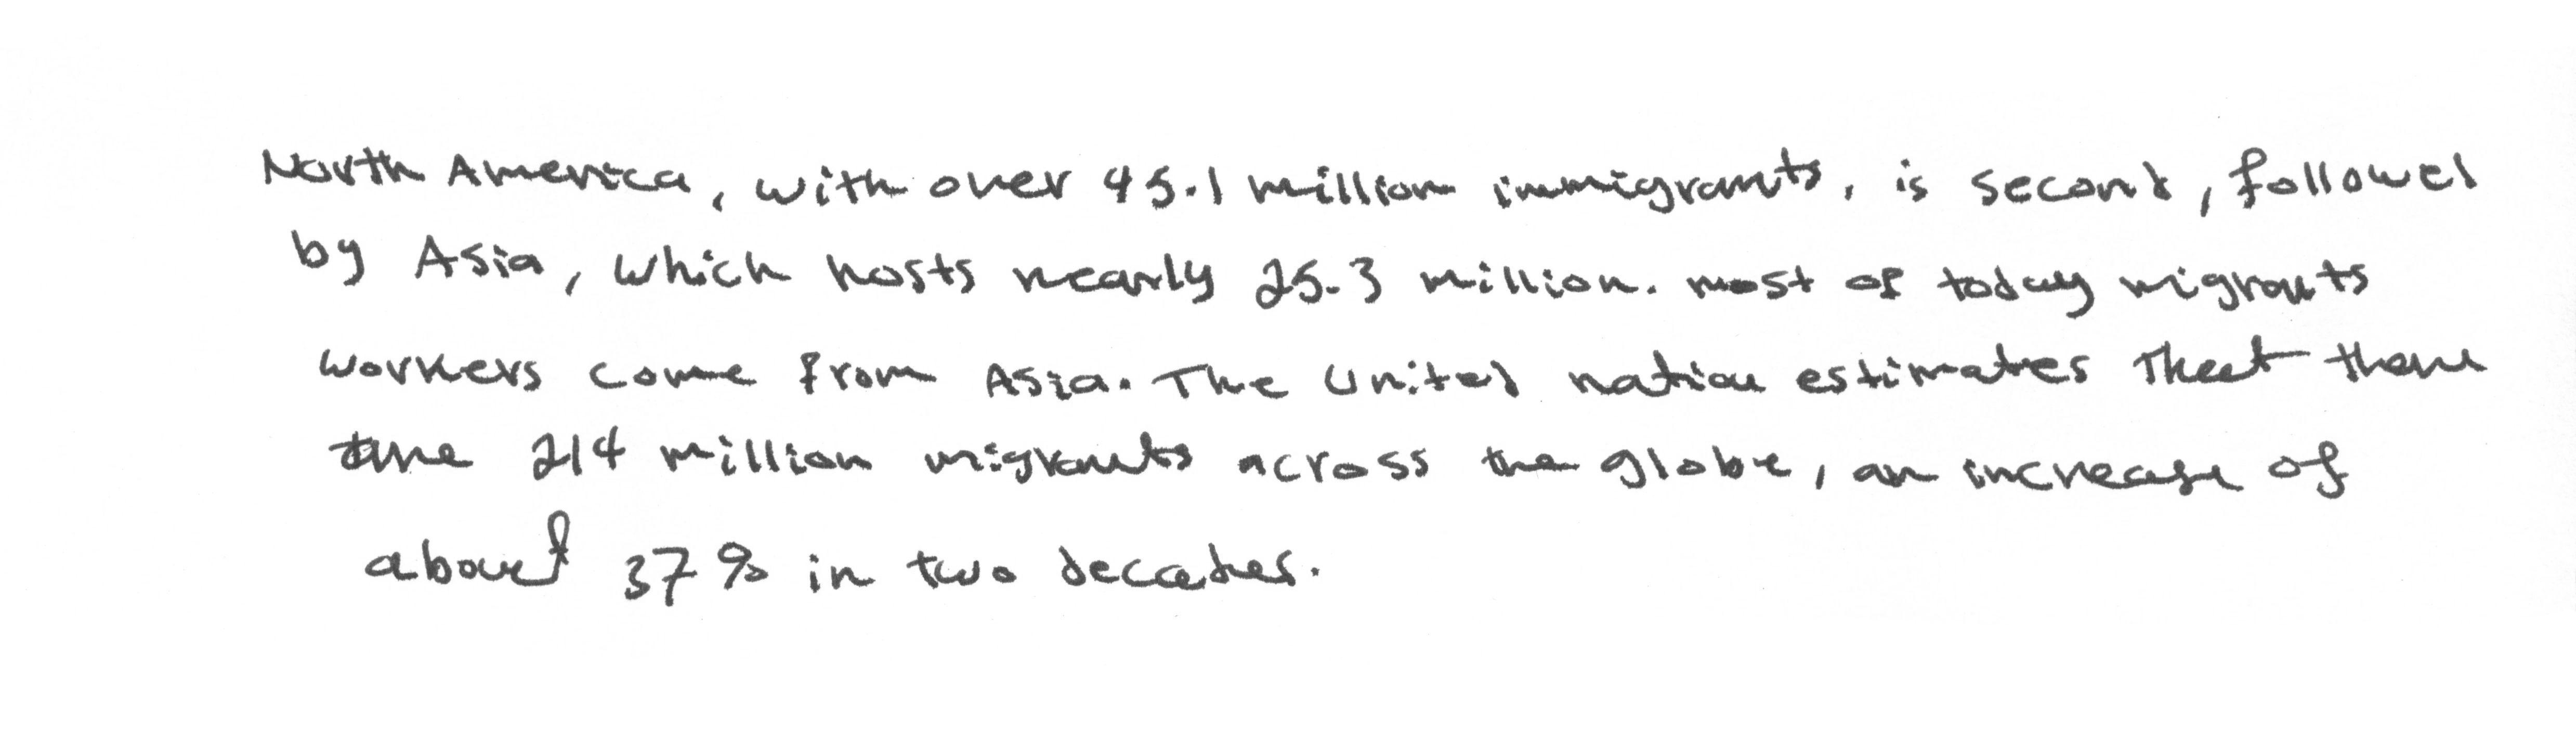 North America, with over 45.1 million immigrants, is second, followed
by Asia, which hosts nearly 25.3 million. most of today migrants
workers come from Asia. The United nation estimates that there
are 214 million migrants across the globe, an increase of
about 37% in two decades.